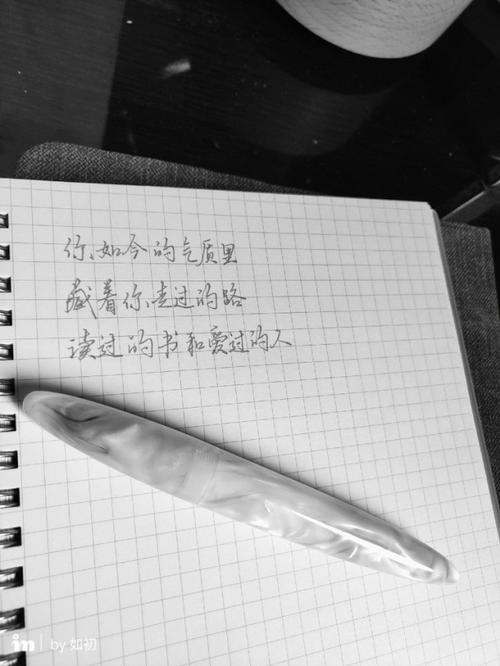 你如今的气质里
藏着你走过的路
读过的书和爱过的人
in | by 如初